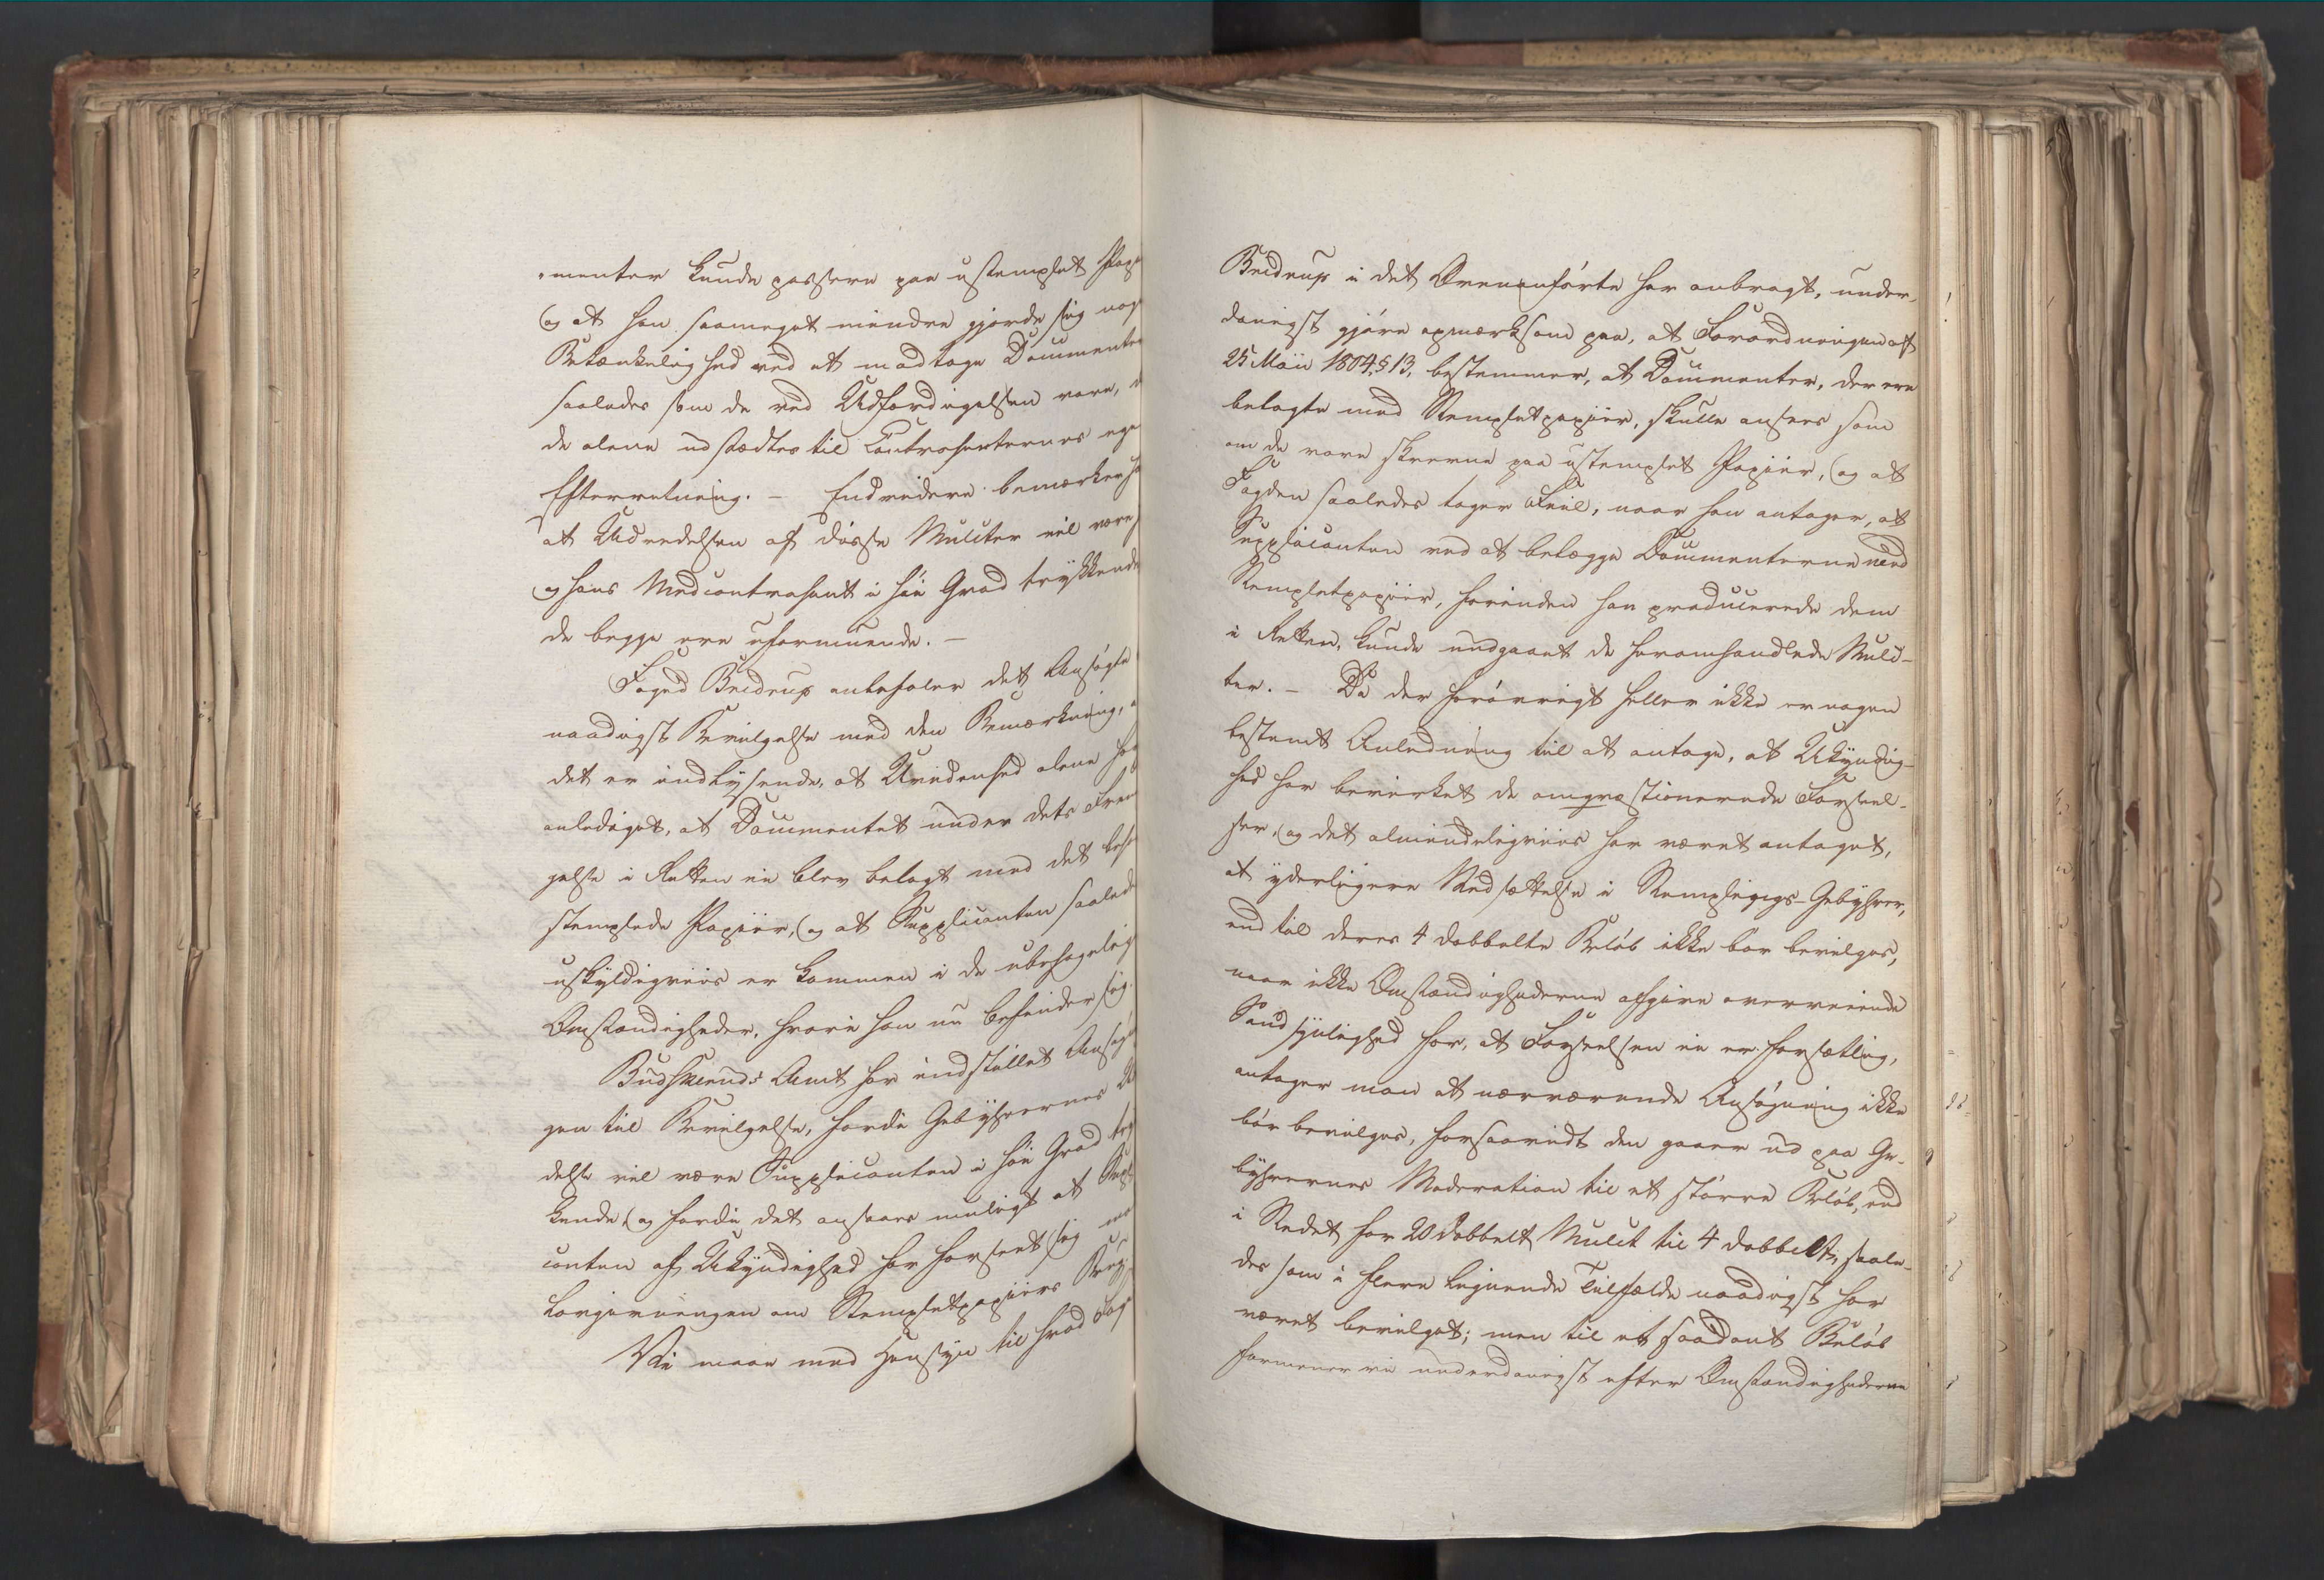 menter kunde passere paa ustemplet Papi
og at han saameget mindre gjorde sig noge
Betænkelighed ved at modtage Documenter
saaledes som de ved Udfærdigelsen vare,
de alene udstædtes til Contrahenternes ege
Efterretning. — Endvidere bemærker ha
at Udredelsen af disse Mulcter vil være
og hans Medcontrahent i høi Grad trykkende
de begge ere uformuende. —
Foged Bredrup anbefaler det Ansøgte
naadigst Bevilgelse med den Bemærkning, a
det er indlysende, at Uvidenhed alene har
anlediget, at Documentet under dets Frem
gelse i Retten ei blev belagt med det beho
stemplede Papiir, og at Supplicanten saaled
uskyldigviis er kommen i de ubehagelig
Omstændigheder, hvori han nu befinder sig.
Budskerud's Amt har indstillet Ansøg
gen til Bevilgelse, fordi Gebyhrernes U
delse vil være Supplicanten i høi Grad try
kende, og fordi det ansees muligt at Supl
canten af Ukyndighed har forseet sig mo
Lovgivningen om Stempletpapiirs Brug.
Vi maae med Hensyn til hvad Foge
Bredrup i det Ovenanførte har anbragt, under-
danigst gjøre opmærksom paa, at Forordningen af
25 Maii 1804, § 13, bestemmer, at Documenter, der ere
belagte med Stempletpapiir, skulle ansees som
om de vare skrevne paa ustemplet Papiir, og at
Fogden saaledes tager Feil, naar han antager, at
Supplicanten ved at belægge Documenterne med
Stempletpapiir, forinden han producerede dem
i Retten, kunde undgaaet de heromhandlede Mulc-
ter. — Da der forøvrigt heller ikke er nogen
bestemt Anledning til at antage, at Ukyndig-
hed har bevirket de omqvæstionerede Forseel-
ser, og det almindeligviis har været antaget,
at yderligere Nedsættelse i Stemplings-Gebyhrer,
end til deres 4 dobbelte Beløb ikke bør bevilges,
naar ikke Omstændighederne afgive overveiende
Sandsynlighed for, at Forseelsen ei er forsætlig,
antager man at nærværende Ansøgning ikke
bør bevilges, forsaavidt den gaaer ud paa Ge-
byhrernes Moderation til et større Beløb, end
i Stedet for 20 dobbelt Mulct til 4 dobbelt, saale-
des som i flere lignende Tilfælde naadigst har
været bevilget; men til et saadant Beløb
formener vi underdanigst efter Omstændighederne